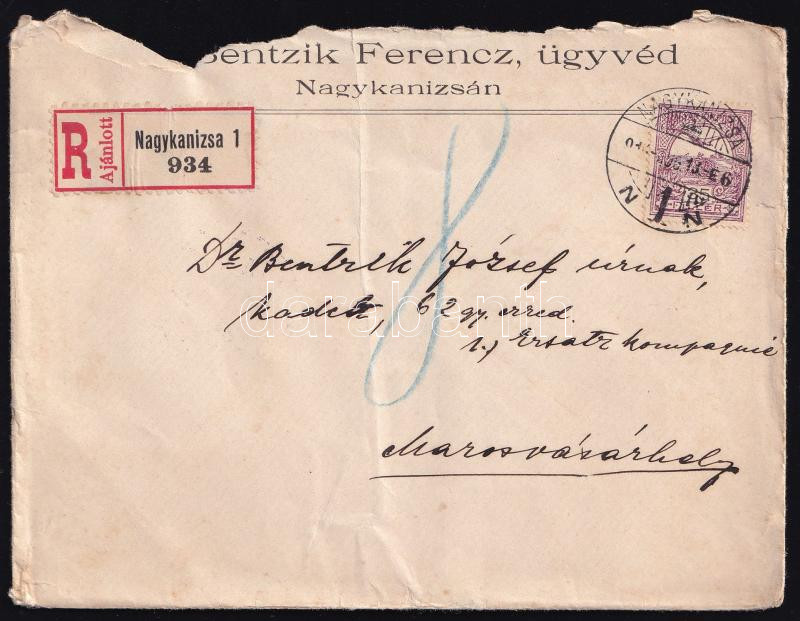 Bentzik Ferencz, ügyvéd
Nagykanizsán
R Ajánlott
Nagykanizsa 1
934
NAGYKANIZSA
35
FILLÉR
8
Dr Bentzik József úrnak,
kadett, 62 gy. ezred.
1.) Ersatz Kompagnie
Marosvásárhely
darabanth